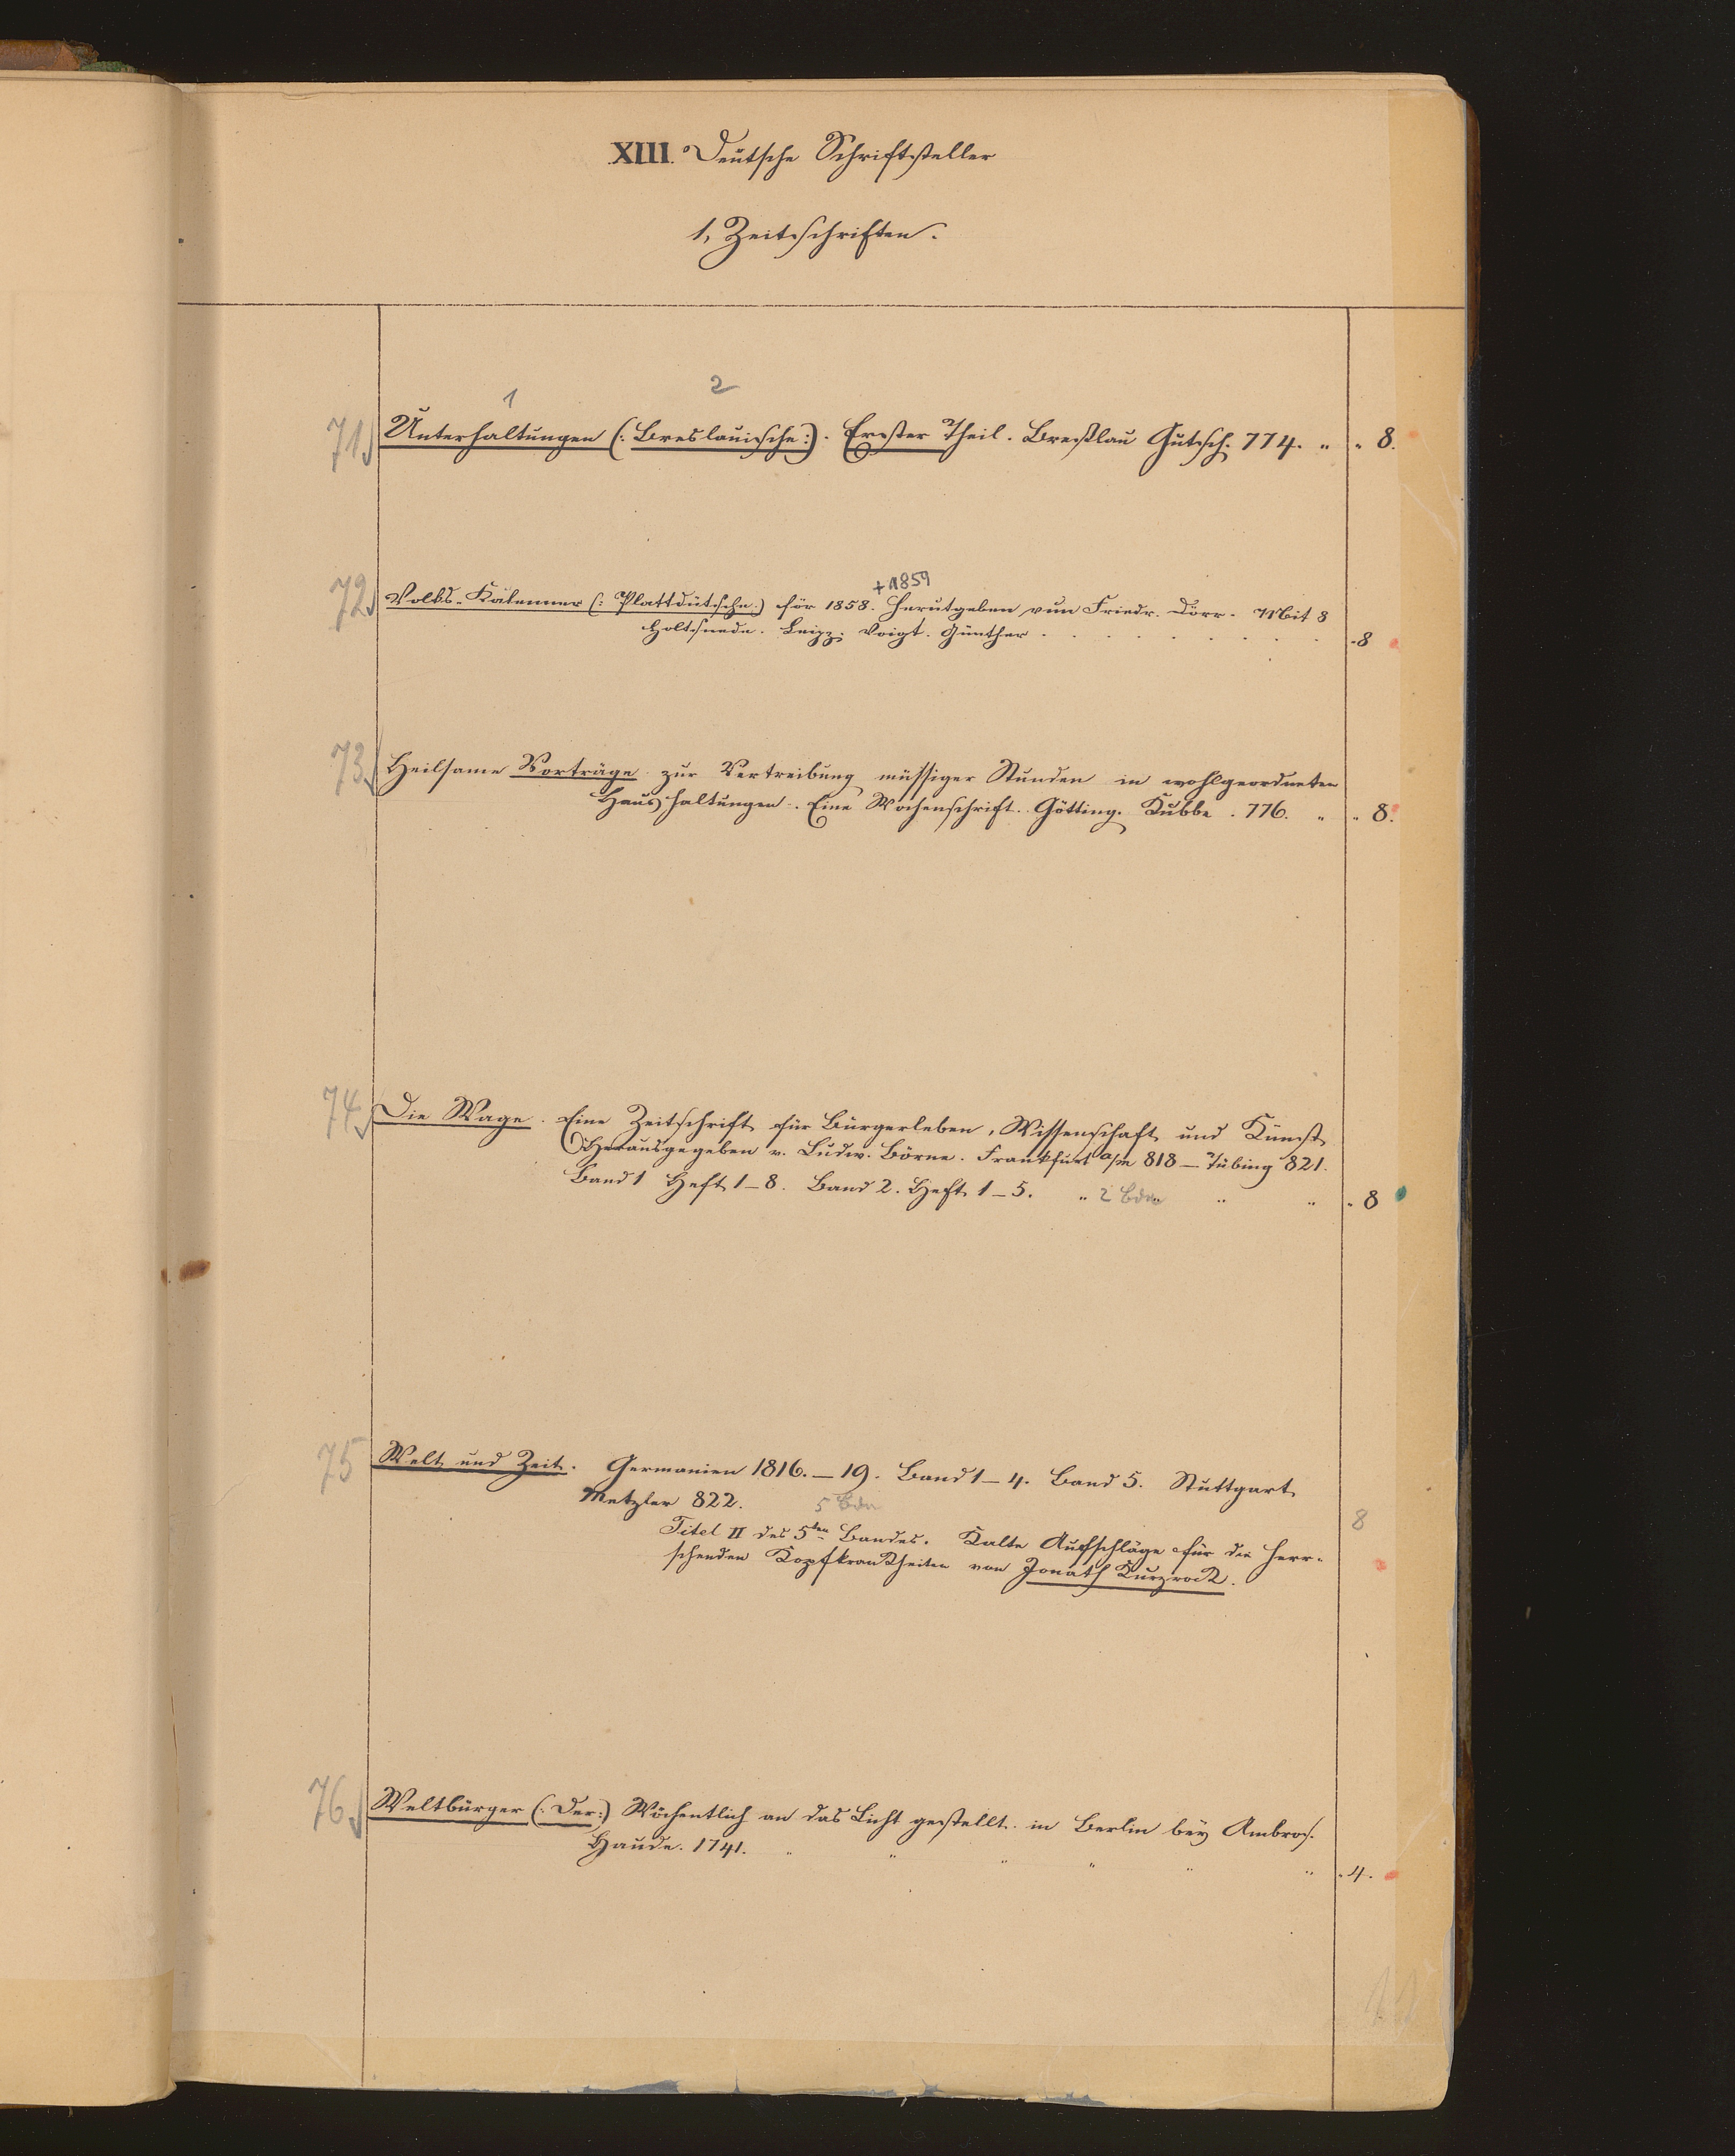 XIII. Deutsche Schriftsteller
1, Zeitschriften.
1 2
71) Unterhaltungen (: Breslauische:). Erster Theil. Breßlau Gutsch. 774. " " 8.
+ 1859
72) Volks-Kalenner (: Plattdütsche:) för 1858. Herutgeben vun Friedr. Dörr. Mit 8
Holtsneden. Leipz. Voigt. Günther . . . . . . . . - 8
73) Heilsame Vorträge zur Vertreibung müssiger Stunden in wohlgeordneten
Haushaltungen. Eine Wochenschrift. Götting. Kübbe. 776. " " 8.
74) Die Wage. Eine Zeitschrift für Bürgerleben, Wissenschaft und Kunst
Herausgegeben v. Ludw. Börne. Frankfurt a/m 818 — Tübing 821.
Band 1 Heft 1-8. Band 2. Heft 1-5. " 2 Bde " " - 8
75 Welt und Zeit. Germanien 1816. — 19. Band 1-4. Band 5. Stuttgart
Metzler 822. 5 Bde 8
Titel II des 5ten Bandes. Kalte Aufschläge für die herr-
schenden Kopfkrankheiten von Jonath Kurzrock.
76) Weltbürger (: Der:) Wöchentlich an das Licht gestellt in Berlin bey Ambros.
Haude. 1741. " " " " " " - 4.